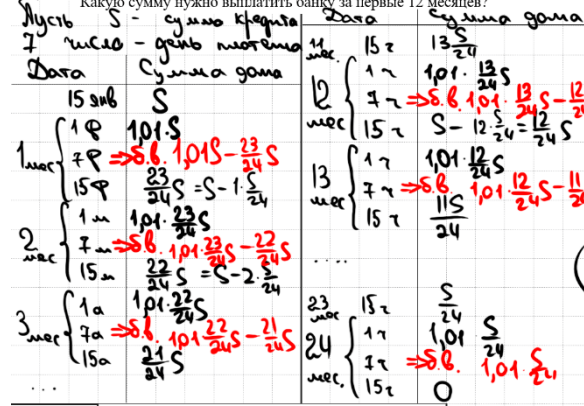 Какую сумму нужно выплатить банку за первые 12 месяцев?
Пусть S - сумма кредита
7 число - день платежа
Дата Сумма долга
15 янв S
1мес 1ф 1,01·S
7ф ⇒б.в. 1,01S - 23/24 S
15ф 23/24 S = S - 1·S/24
2мес 1м 1,01·23/24 S
7м ⇒б.в. 1,01·23/24 S - 22/24 S
15м 22/24 S = S - 2·S/24
3мес 1а 1,01·22/24 S
7а ⇒б.в. 1,01 22/24 S - 21/24 S
15а 21/24 S
...
Дата Сумма долга
11 мес 15ч 13 S/24
12 мес 1ч 1,01·13/24 S
7ч ⇒б.в. 1,01·13/24 S - 12/24
15ч S - 12·S/24 = 12/24 S
13 мес 1ч 1,01·12/24 S
7ч ⇒б.в. 1,01·12/24 S - 11/24
15ч 11S/24
....
23 мес 15ч S/24
24 мес. 1ч 1,01 S/24
7ч ⇒б.в. 1,01·S/24
15ч 0